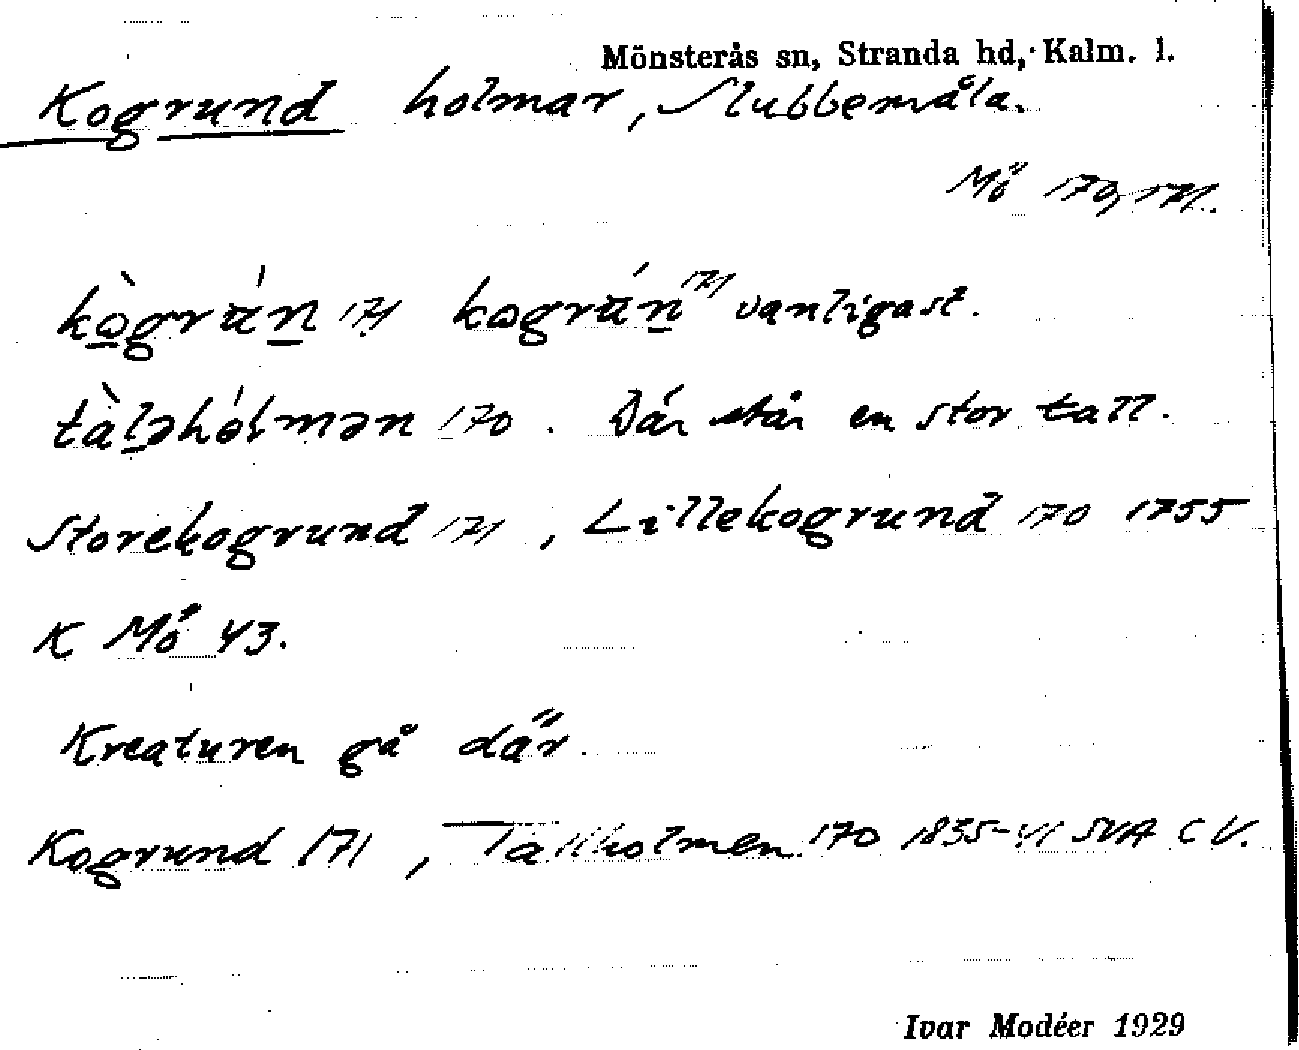 Mönsterås sn, Stranda hd, Kalm. l.
Kogrund holmar, Slubbemåla.
Mö 170, 171.
kògrán 171 kográn 171 vanligast.
tàləhólmən 170. Där står en stor tall.
Storekogrund 171, Lillekogrund 170 1755
K Mö 43.
Kreaturen gå där.
Kogrund 171, Tallholmen 170 1835-41 SVA C V.
Ivar Modéer 1929